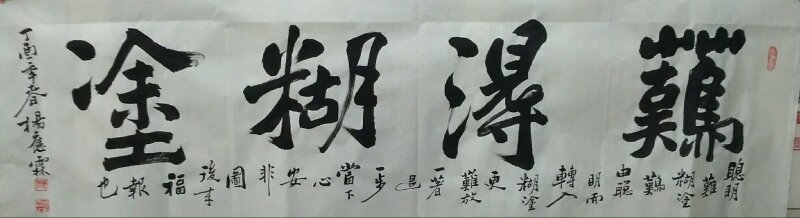 難得糊塗
聰明難糊塗難由聰明而轉入糊塗更難放一著退一步當下心安非圖後来福報也
丁酉年春楊應霖